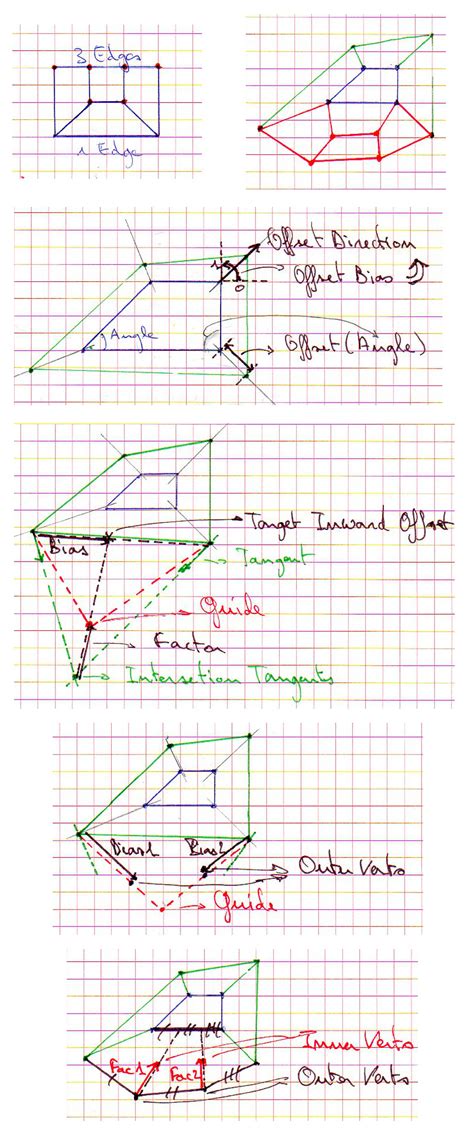 3 Edges
1 Edge
Offset Direction
1
Offset Bias
0
Angle
Offset (Angle)
Target Inward Offset
Bias
Tangent
Guide
Factor
Intersetion Tangents
Bias1 Bias2
Outer Verts
Guide
Inner Verts
Fac1 Fac2
Outer Verts